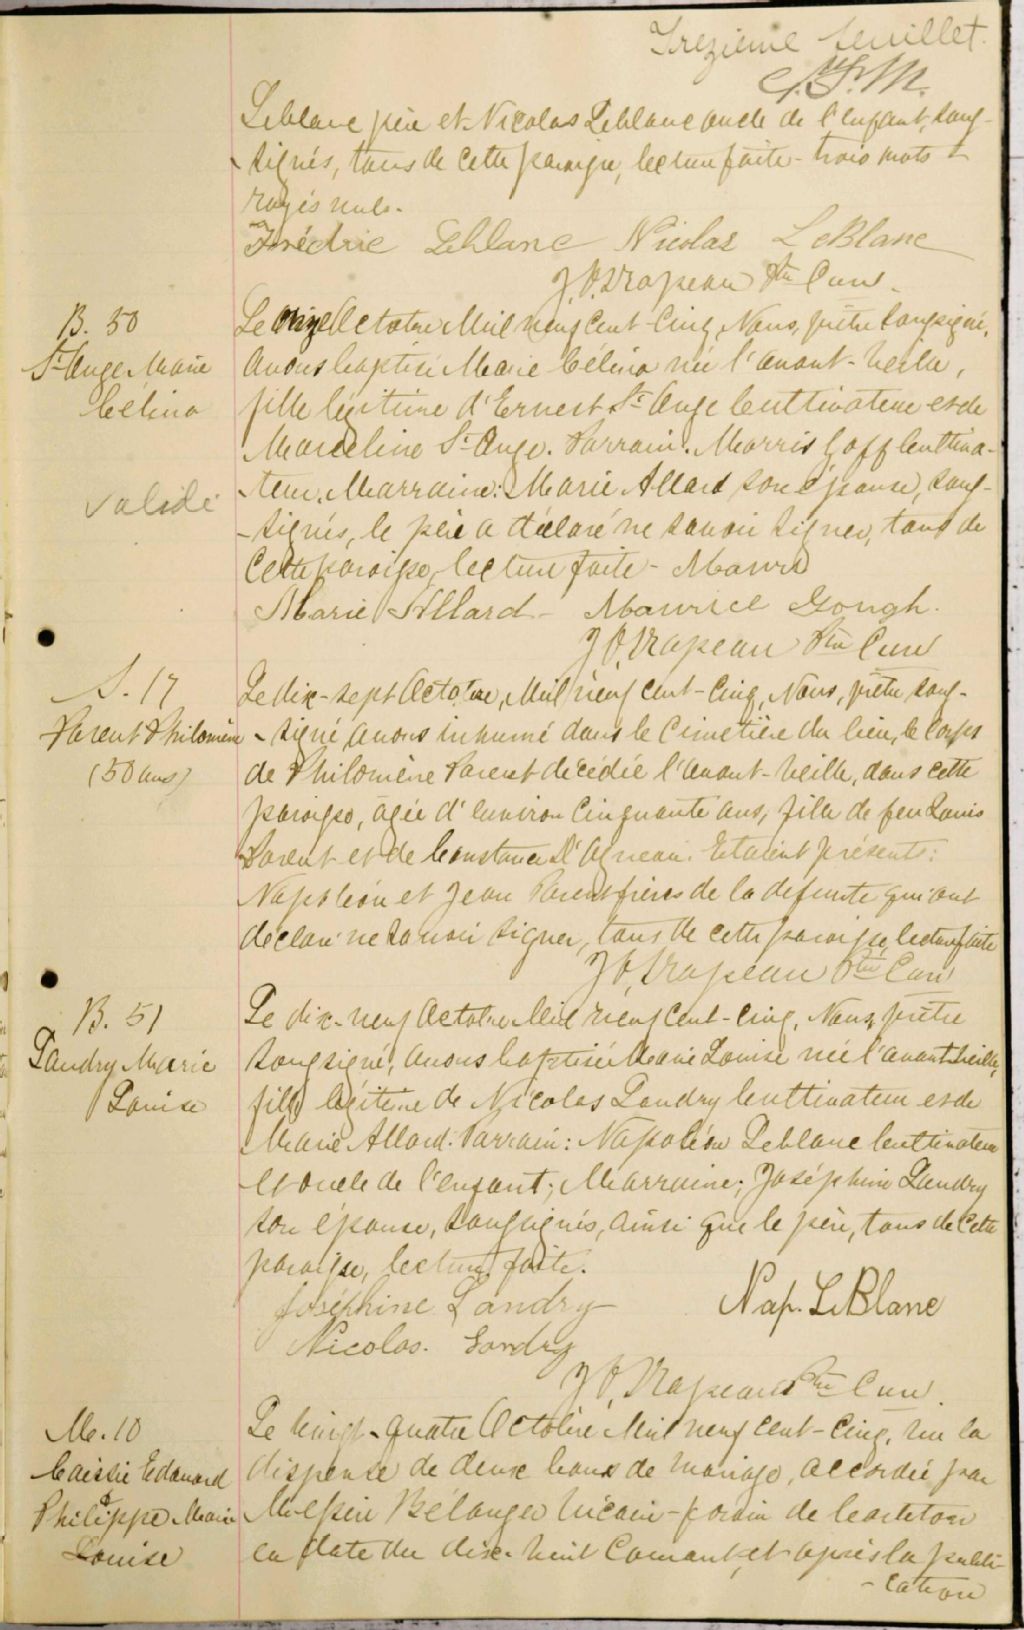 Treizième feuillet.
Leblanc père et Nicolas Leblanc oncle de l'enfant, sous-
-signés, tous de cette paroisse, lecture faite - trois mots
rayés nuls.
Frédric Leblanc Nicolas LeBlanc
J. O. Drapeau Ptre Curé.
B. 50
St Ange Marie
Célina
Validé
Le Onze Octobre Mil neuf cent-cinq, Nous, prêtre soussigné,
avons baptisé Marie Célina née l'avant-veille,
fille légitime d'Ernest St Ange Cultivateur et de
Marceline St Ange. Parrain: Morris Goff Cultiva-
-teur, Marraine: Marie Allard son épouse, sous-
-signés, le père a déclaré ne savoir signer, tous de
cette paroisse, lecture faite - Mauri
Marie Allard - Maurice Gough.
J O. Drapeau Ptre Curé
S. 17
Parent Philomène
(50 ans)
Le dix-sept Octobre, Mil neuf cent-cinq, Nous, prêtre sous-
-signé avons inhumé dans le Cimetière du lieu, le Corps
de Philomène Parent décédée l'avant-veille, dans cette
paroisse, agée d'environ Cinquante ans, fille de feu Louis
Parent et de Constance L'Agneau. Etaient présents:
Napoléon et Jean Parent frères de la défunte qui ont
déclaré ne savoir signer, tous de cette paroisse, lecture faite
J O. Drapeau Ptre Curé
B. 51
Landry Marie
Louise
Le dix-neuf Octobre Mil neuf cent-cinq, Nous prêtre
soussigné, avons baptisé Marie Louise née l'avant veille,
fille légitime de Nicolas Landry Cultivateur et de
Marie Allard. Parrain: Napoléon Leblanc Cultivateur
et oncle de l'enfant; Marraine; Joséphine Landry
son épouse, soussignés, ainsi que le père, tous de Cette
paroisse, lecture faite.
Joséphine Landry Nap. LeBlanc
Nicolas. Landry
J O. Drapeau Ptre Curé.
M. 10
Caissie Edouard
Philippe Marie
Louise
Le vingt-quatre Octobre Mil neuf cent-cinq, vu la
dispense de deux bans de mariage, accordée par
Mr Bélanger Vicaire-forain de Carleton
en date du dix-huit Courant, et après la publi-
-cation